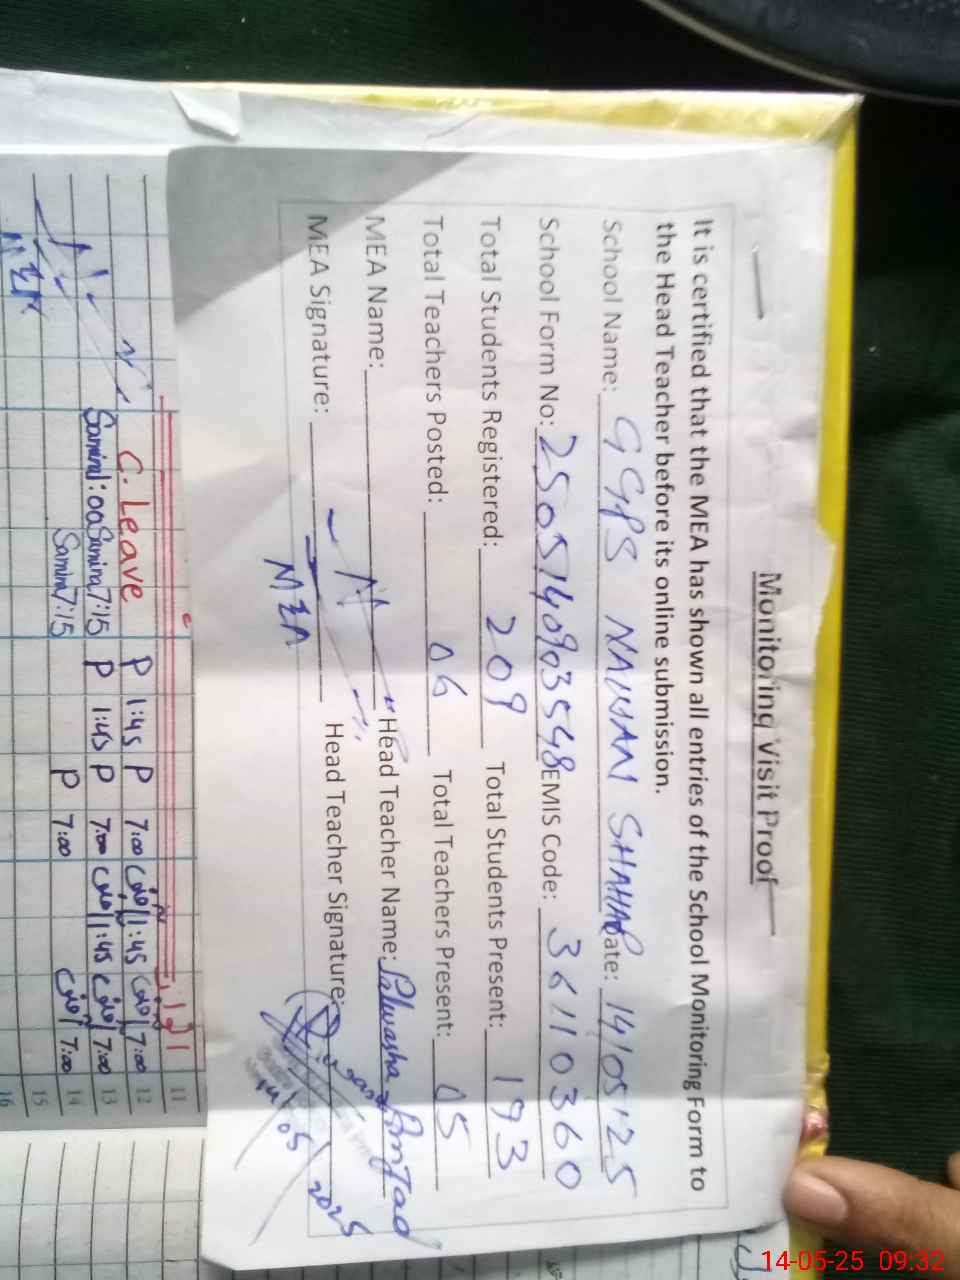 Monitoring Visit Proof
It is certified that the MEA has shown all entries of the School Monitoring Form to
the Head Teacher before its online submission.
School Name: GGPS NAWAN SHAHAR Date: 14/05/25
School Form No: 2505140903548 EMIS Code: 36110360
Total Students Registered: 209 Total Students Present: 193
Total Teachers Posted: 06 Total Teachers Present: 05
MEA Name: Head Teacher Name: Salwasha Amjad
MEA Signature: Head Teacher Signature:
MEA
14/05/2025
11
C. Leave P 1:45 P 7:00 1:45 7:00 12
Samina 1:00 Samina 7:15 P 1:45 P 7:00 1:45 7:00 13
Samina 7:15 P 7:00 7:00 14
MEA 15
16
14-05-25 09:32